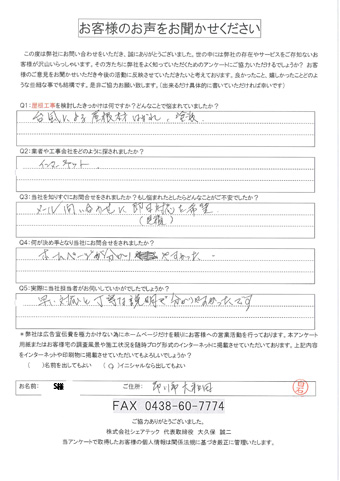 お客様のお声をお聞かせください
この度は弊社にお問い合わせをいただき、誠にありがとうございました。世の中には弊社の存在やサービスをご存知ないお
客様が沢山いらっしゃいます。その方たちに弊社をよく知っていただくためのアンケートにご協力いただけるでしょうか? お客
様のご意見をお聞かせいただき今後の活動に反映させていただきたいと考えております。良かったこと、嬉しかったことどのよ
うな些細な事でも結構です。是非ご協力お願い致します。(出来るだけ具体的に書いていただければ幸いです)
Q1:屋根工事を検討したきっかけは何ですか?どんなことで悩まれていましたか?
台風による屋根材はがれ、塗装
Q2:業者や工事会社をどのように探されましたか?
インターネット
Q3:当社を知りすぐにお問合せをされましたか?もし悩まれたとしたらどんなことがご不安でしたか?
メール問い合わせに即対応を希望
Q4:何が決め手となり当社にお問合せをされましたか?
ホームページが分かりやすかった
Q5:実際に当社担当者がお伺いしていかがでしたでしょうか?
早い対応と丁寧な説明で分かりやすかったです
*弊社は広告宣伝費を極力かけない為にホームページだけを頼りにお客様への営業活動を行っております。本アンケート
用紙またはお客様宅の調査風景や施工状況を随時ブログ形式のインターネットに掲載させていただいております。上記内容
をインターネットや印刷物に掲載させていただいてもよろしいでしょうか?
( )名前を出してもよい (○)イニシャルなら出してもよい
お名前: S様 ご住所:
FAX 0438-60-7774
ご協力ありがとうございました。
株式会社シェアテック 代表取締役 大久保 誠二
当アンケートで取得したお客様の個人情報は関係法規に基づき厳正に管理いたします。